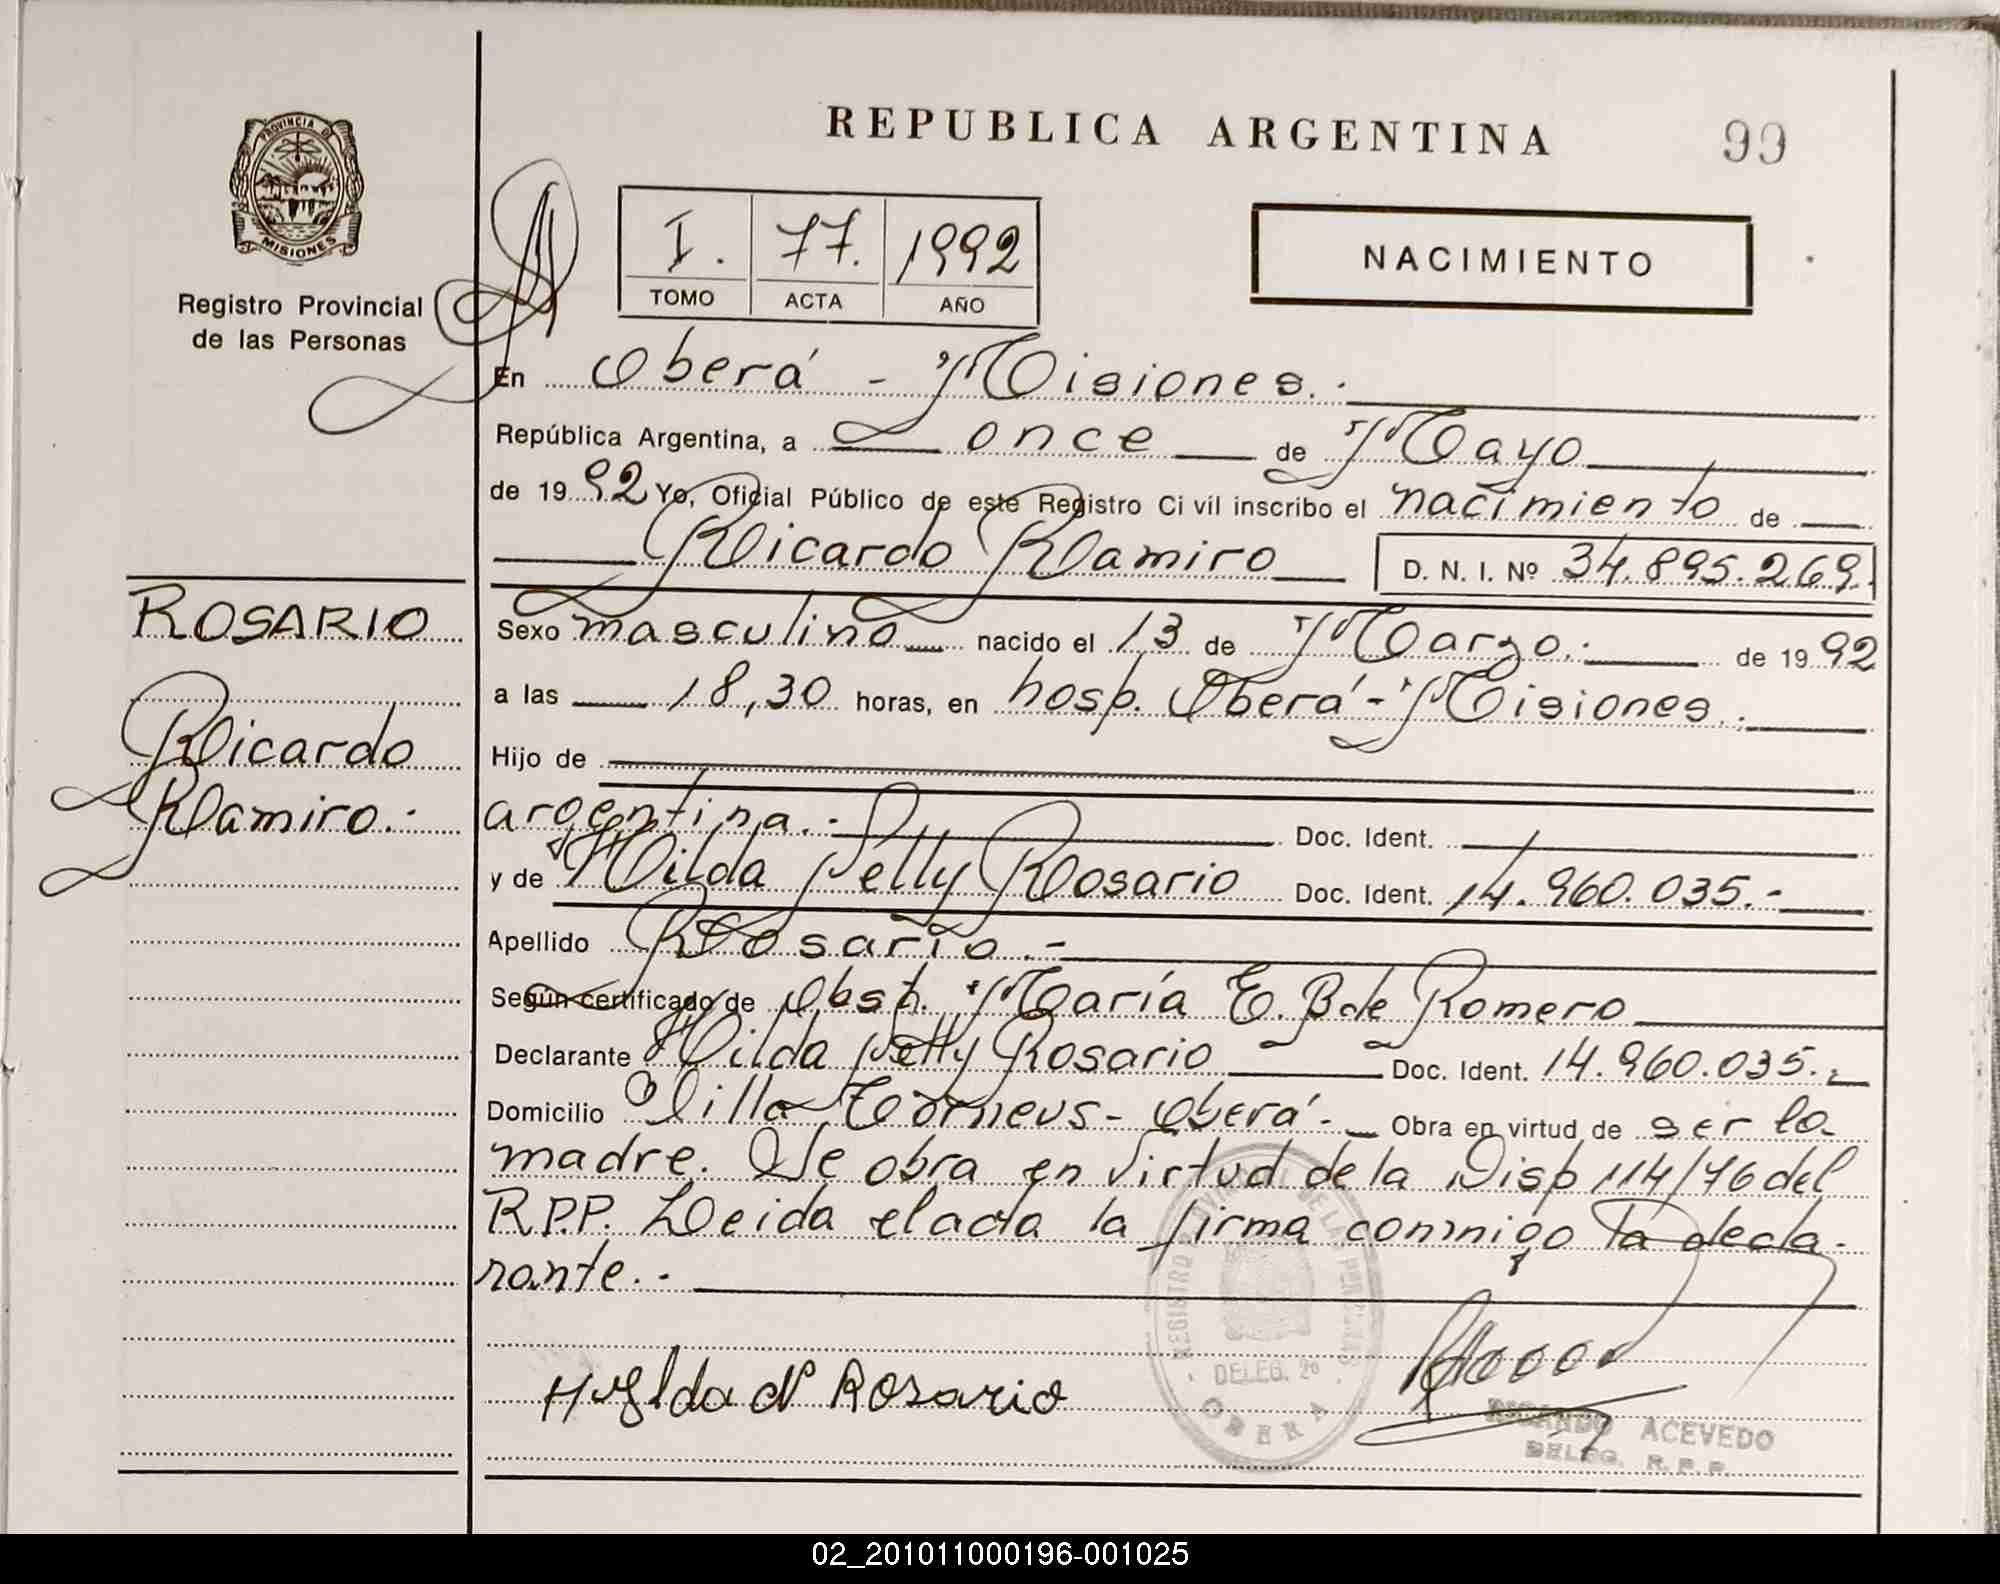 REPUBLICA ARGENTINA
99
PROVINCIA DE
MISIONES
Registro Provincial
de las Personas
I. 77. 1992
TOMO ACTA AÑO
NACIMIENTO
En Oberá - Misiones.-
República Argentina, a once de Mayo
de 1992 Yo, Oficial Público de este Registro Civil inscribo el nacimiento de
Ricardo Ramiro D. N. I. Nº 34.895.269.
ROSARIO
Ricardo
Ramiro.-
Sexo masculino nacido el 13 de Marzo.- de 1992
a las 18,30 horas, en hosp. Oberá - Misiones.-
Hijo de
argentina.- Doc. Ident.
y de Hilda Nelly Rosario Doc. Ident. 14.960.035.-
Apellido Rosario.-
Según certificado de Obst. María E. B de Romero
Declarante Hilda Nelly Rosario Doc. Ident. 14.960.035.-
Domicilio Villa Torneus - Oberá.- Obra en virtud de ser la
madre. Se obra en virtud de la Disp 114/76 del
R.P.P. Leida el acta la firma conmigo la decla-
rante.-
Hilda N Rosario
REGISTRO PROVINCIAL DE LAS PERSONAS
DELEG. 2º
OBERA
ACEVEDO
DELEG. R.P.P.
02_201011000196-001025